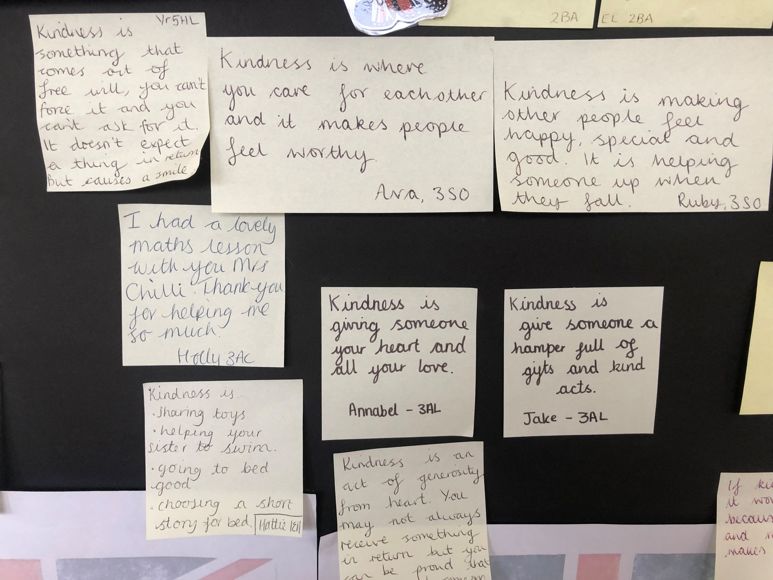 2BA
EL 2BA
Yr5HL
Kindness is
something that
comes out of
free will, you can't
force it and you
can't ask for it.
It doesn't expect
a thing in return
but causes a smile.
Kindness is where
you care for eachother
and it makes people
feel worthy
Ava, 3SO
Kindness is making
other people feel
happy, special and
good. It is helping
someone up when
they fall.
Ruby, 3SO
I had a lovely
maths lesson
with you Mrs
Chilli. Thank you
for helping me
so much.
Holly 3AC
Kindness is
giving someone
your heart and
all your love.
Annabel - 3AL
Kindness is
give someone a
hamper full of
gifts and kind
acts.
Jake - 3AL
Kindness is...
• sharing toys
• helping your
sister to swim.
• going to bed
good
• choosing a short
story for bed.
Hattie
Kindness is an
act of generosity
from heart. You
may not always
receive something
in return but you
can be proud that
If
it
because
and
makes